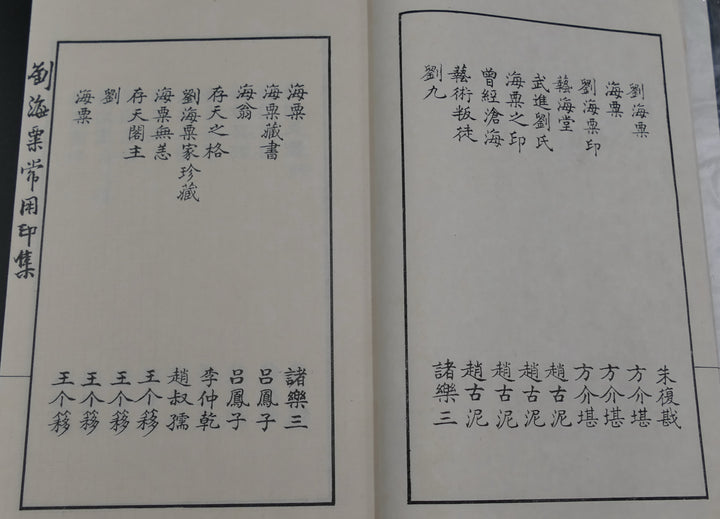 劉海粟 朱復戡
海粟 方介堪
劉海粟印 方介堪
藝海堂 方介堪
武進劉氏 趙古泥
海粟之印 趙古泥
曾經滄海 趙古泥
藝術叛徒 趙古泥
劉九 諸樂三
海粟 諸樂三
海粟藏書 呂鳳子
海翁 呂鳳子
存天之格 李仲乾
劉海粟家珍藏 趙叔孺
海粟無恙 王个簃
存天閣主 王个簃
劉 王个簃
海粟 王个簃
劉海粟常用印集